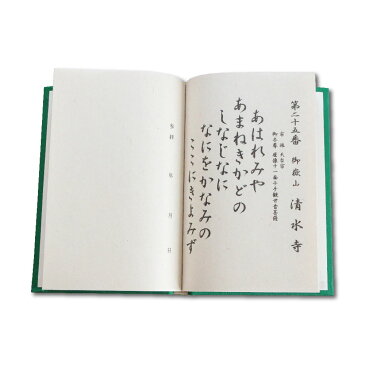 第二十五番 御嶽山 清水寺
宗派 天台宗
御本尊 座像十一面千手観世音菩薩
あはれみや
あまねきかどの
しなじなに
なにをかなみの
ここにきよみず
参拝 年 月 日